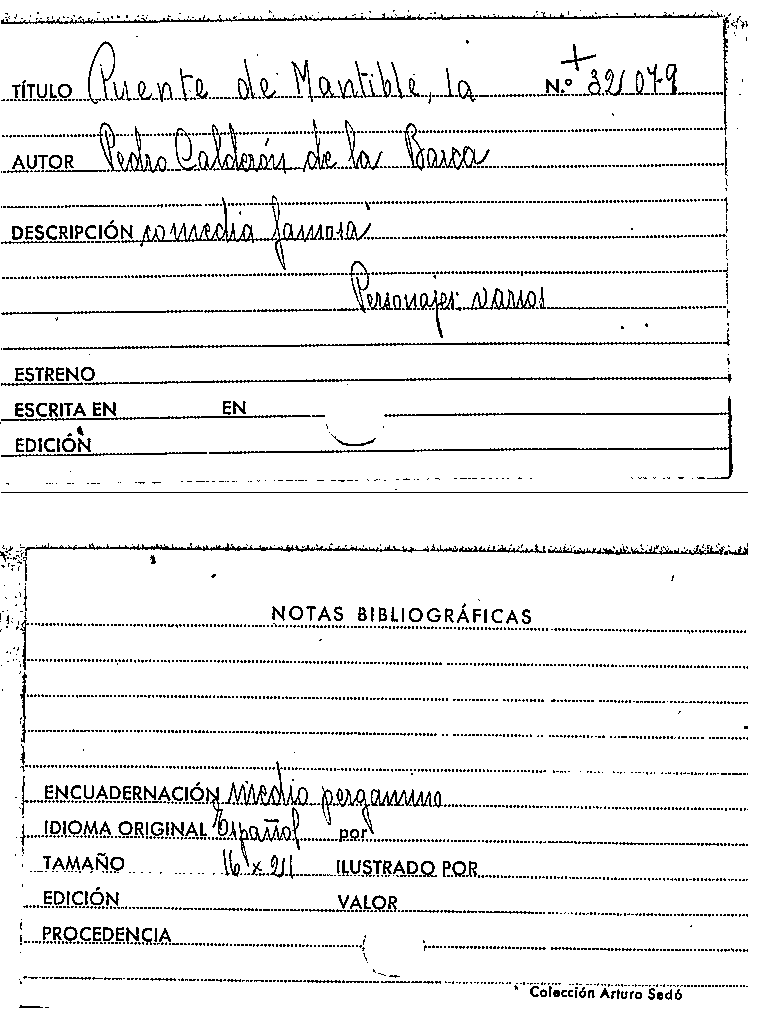 TÍTULO Puente de Mantible, la N.º 32079
AUTOR Pedro Calderón de la Barca
DESCRIPCIÓN comedia famosa
Personajes: varios
ESTRENO
ESCRITA EN EN
EDICIÓN
NOTAS BIBLIOGRÁFICAS
ENCUADERNACIÓN Medio pergamino
IDIOMA ORIGINAL Español por
TAMAÑO 16 x 21 ILUSTRADO POR
EDICIÓN VALOR
PROCEDENCIA
Colección Arturo Sedó